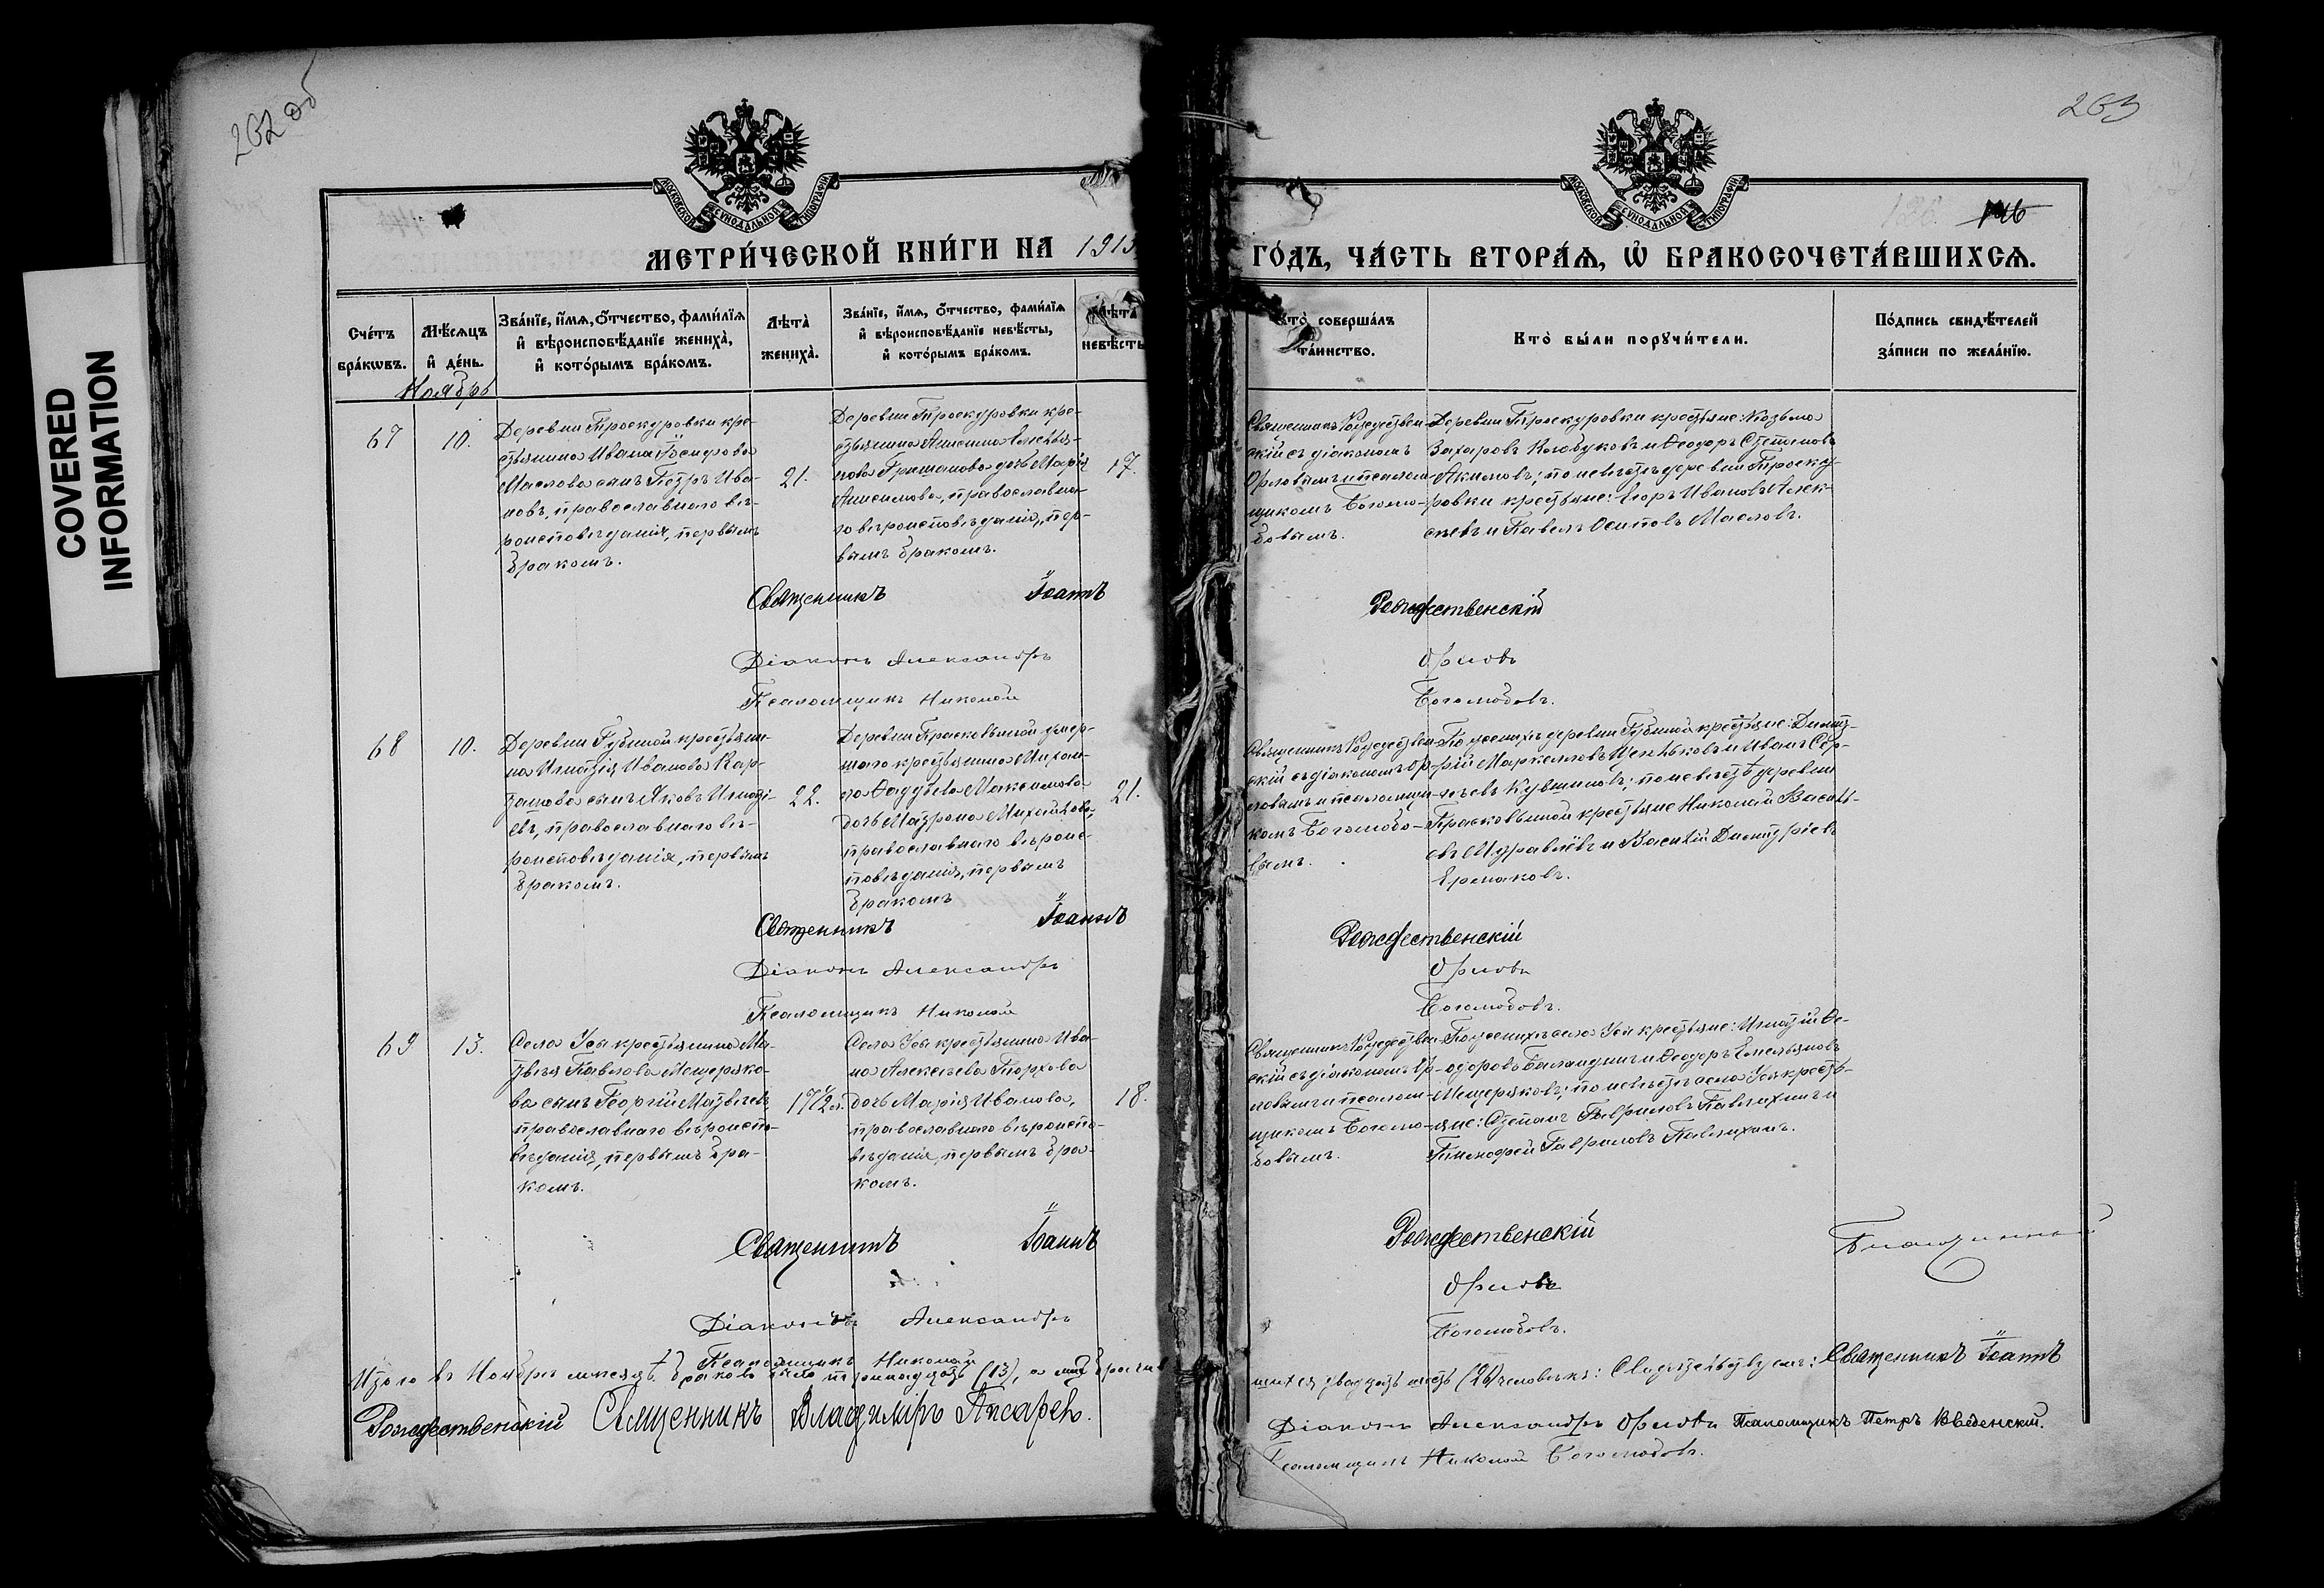 COVERED
INFORMATION
262 об
263
МОСКОВСКОЙ СѴНОДАЛЬНОЙ ТИПОГРАФІИ
МОСКОВСКОЙ СѴНОДАЛЬНОЙ ТИПОГРАФІИ
146
МЕТРИ́ЧЕСКОЙ КНИ́ГИ НА 1915
ГО́ДЪ, ЧА́СТЬ ВТОРА́Ѧ, Ѡ҆ БРАКОСОЧЕТА́ВШИХСѦ.
Сче́тъ
бра́кѡвъ.
Мѣ́сѧцъ
и҆ де́нь.
Зва́нїе, и҆́мѧ, ѻ҆́тчество, фами́лїѧ
и҆ вѣроисповѣ́данїе жениха̀,
и҆ кото́рымъ бра́комъ.
Лѣта̀
жениха̀.
Зва́нїе, и҆́мѧ, ѻ҆́тчество, фами́лїѧ
и҆ вѣроисповѣ́данїе невѣ́сты,
и҆ кото́рымъ бра́комъ.
Лѣта̀
невѣ́сты
Кто̀ соверша́лъ
та́инство.
Кто̀ бы́ли порꙋчи́тели.
По́дпись свидѣ́телей
за́писи по жела́нїю.
Ноябрь
67
10.
Деревни Проскуровки кре-
стьянина Ивана Іосифова
Маслова сынъ Петръ Ива-
новъ, православнаго вѣ-
роисповѣданія, первымъ
бракомъ.
21.
Деревни Проскуровки кре-
стьянина Анисима Емелья-
нова Гришанова дочь Марія
Анисимова, православна-
го вѣроисповѣданія, пер-
вымъ бракомъ.
17.
Священникъ Рождествен-
скій съ діакономъ
Орловымъ и псалом-
щикомъ Боголю-
бовымъ.
Деревни Проскуровки крестьяне: Козьма
Захаровъ Колобуковъ и Ѳеодоръ Степановъ
Акимовъ; по невѣстѣ деревни Проску-
ровки крестьяне: Егоръ Ивановъ Алек-
сѣевъ и Павелъ Осиповъ Масловъ.
Священникъ Іоаннъ Рождественскій
Діаконъ Александръ Орловъ
Псаломщикъ Николай Боголюбовъ.
68
10.
Деревни Губиной крестьяни-
на Игнатія Иванова Кар-
ташова сынъ Яковъ Игнаті-
евъ, православнаго вѣ-
роисповѣданія, первымъ
бракомъ.
22.
Деревни Прасковьиной умер-
шаго крестьянина Михаи-
ла Ѳаддѣева Максимова
дочь Матрона Михайлова,
православнаго вѣроис-
повѣданія, первымъ
бракомъ
21.
Священникъ Рождествен-
скій съ діакономъ Ор-
ловымъ и псаломщи-
комъ Боголюбо-
вымъ.
По женихѣ деревни Губиной крестьяне: Димит-
рій Маркелловъ Щеньковъ и Иванъ Сер-
гѣевъ Кувшиновъ; по невѣстѣ деревни
Прасковьиной крестьяне Николай Василь-
евъ Муравлёвъ и Василій Димитріевъ
Ермаковъ.
Священникъ Іоаннъ Рождественскій
Діаконъ Александръ Орловъ
Псаломщикъ Николай Боголюбовъ.
69
13.
Села Уса крестьянина Ма-
твѣя Павлова Мещеряко-
ва сынъ Георгій Матвѣевъ,
православнаго вѣроиспо-
вѣданія, первымъ бра-
комъ.
17½ л.
Села Уса крестьянина Ива-
на Алексѣева Порхова
дочь Марія Иванова,
православнаго вѣроиспо-
вѣданія, первымъ бра-
комъ.
18.
Священникъ Рождествен-
скій съ діакономъ Ор-
ловымъ и псалом-
щикомъ Боголю-
бовымъ.
По женихѣ села Уса крестьяне: Игнатій Ѳе-
одоровъ Баландинъ и Ѳеодоръ Емельяновъ
Мещеряковъ; по невѣстѣ села Уса кресть-
яне: Степанъ Гавриловъ Павлихинъ и
Тимофей Гавриловъ Павлихинъ.
Священникъ Іоаннъ Рождественскій
Діаконъ Александръ Орловъ
Псаломщикъ Николай Боголюбовъ.
Итого въ Ноябрѣ мѣсяцѣ браковъ было тринадцать (13), а
шихся двадцать шесть (26) человѣкъ: Свидѣтельствуемъ: Священникъ Іоаннъ
Рождественскій Священникъ Владиміръ Писаревъ.
Діаконъ Александръ Орловъ Псаломщикъ Петръ Введенскій.
Псаломщикъ Николай Боголюбовъ.